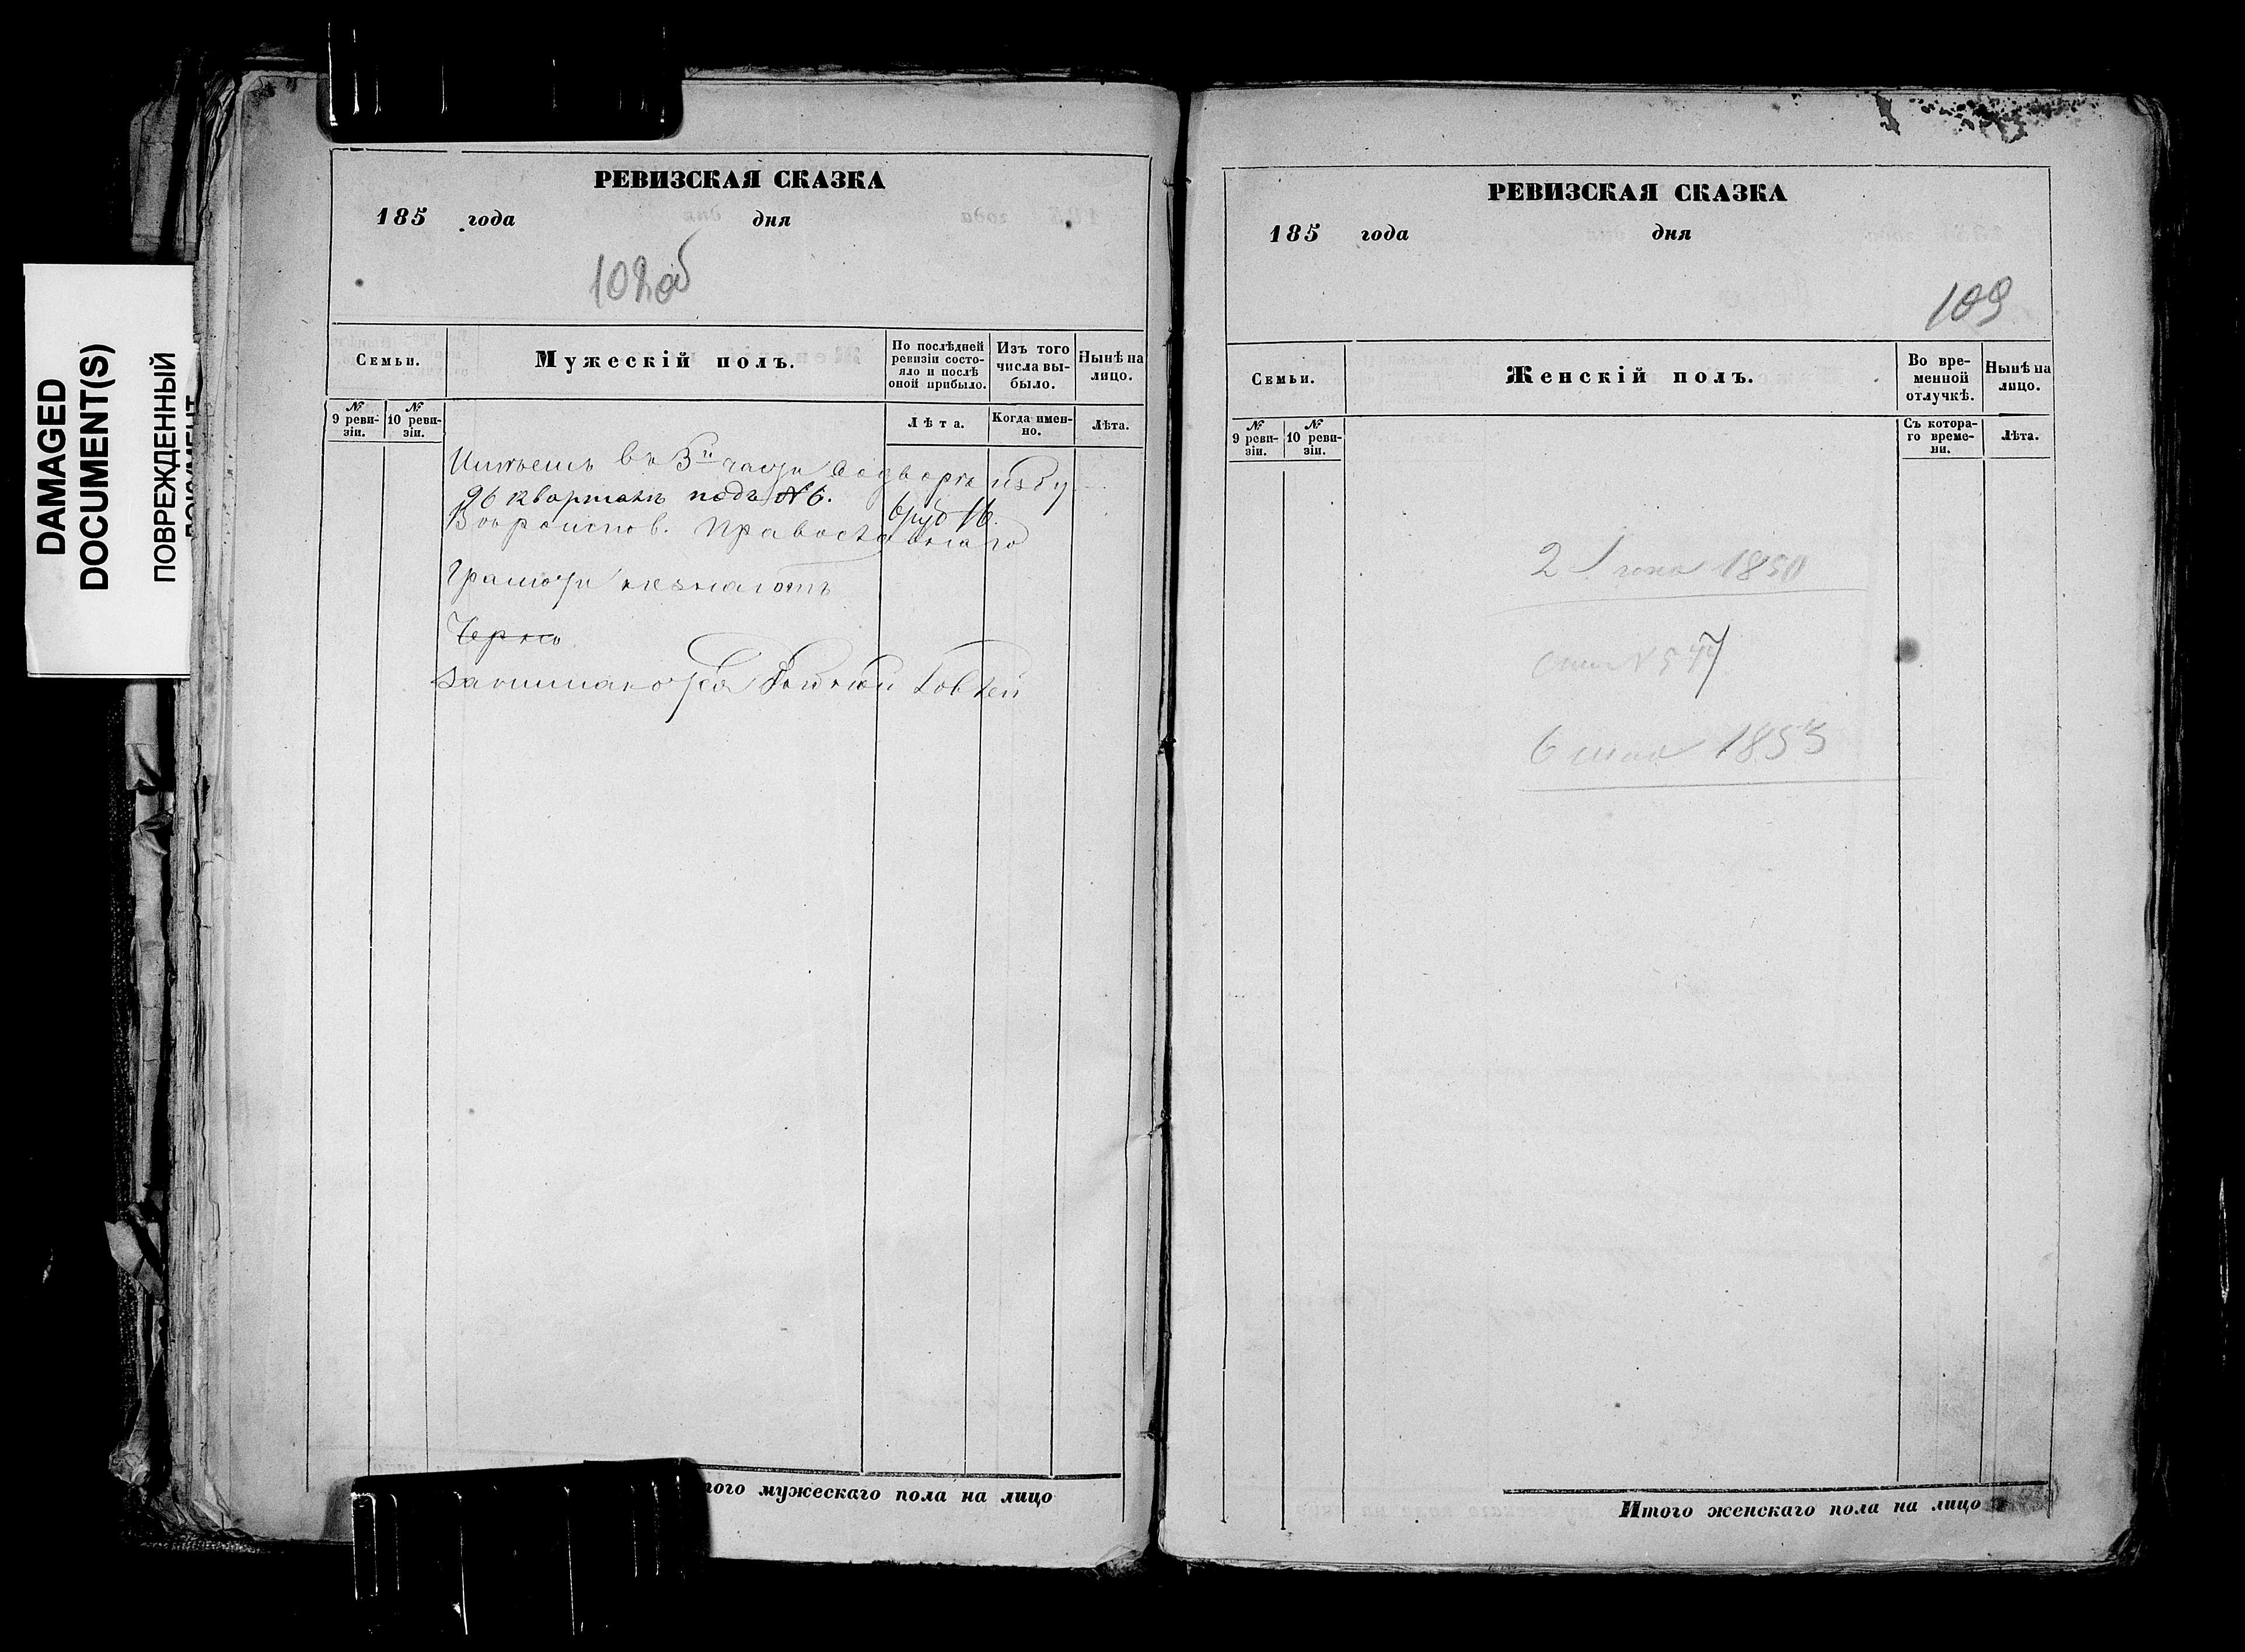 DAMAGED
DOCUMENT(S)
ПОВРЕЖДЕННЫЙ
ДОКУМЕНТ
РЕВИЗСКАЯ СКАЗКА
185 года дня
102об
Семьи.
Мужескій полъ.
По послѣдней ревизіи состо-
яло и послѣ оной прибыло.
Изъ того числа вы-
было.
Нынѣ на лицо.
№ 9 реви-
зіи.
№ 10 реви-
зіи.
Лѣта.
Когда имен-
но.
Лѣта.
Имѣетъ въ 3й части подворкѣ избу
96 кварталѣ подъ № 6.
Вѣроиспов. Православнаго
Грамоти незнаютъ
занимаются
того мужескаго пола на лицо
РЕВИЗСКАЯ СКАЗКА
185 года дня
109
Семьи.
Женскій полъ.
Во вре-
менной отлучкѣ.
Нынѣ на лицо.
№ 9 реви-
зіи.
№ 10 реви-
зіи.
Съ котора-
го време-
ни.
Лѣта.
2 1850
6 мая 1853
Итого женскаго пола на лицо